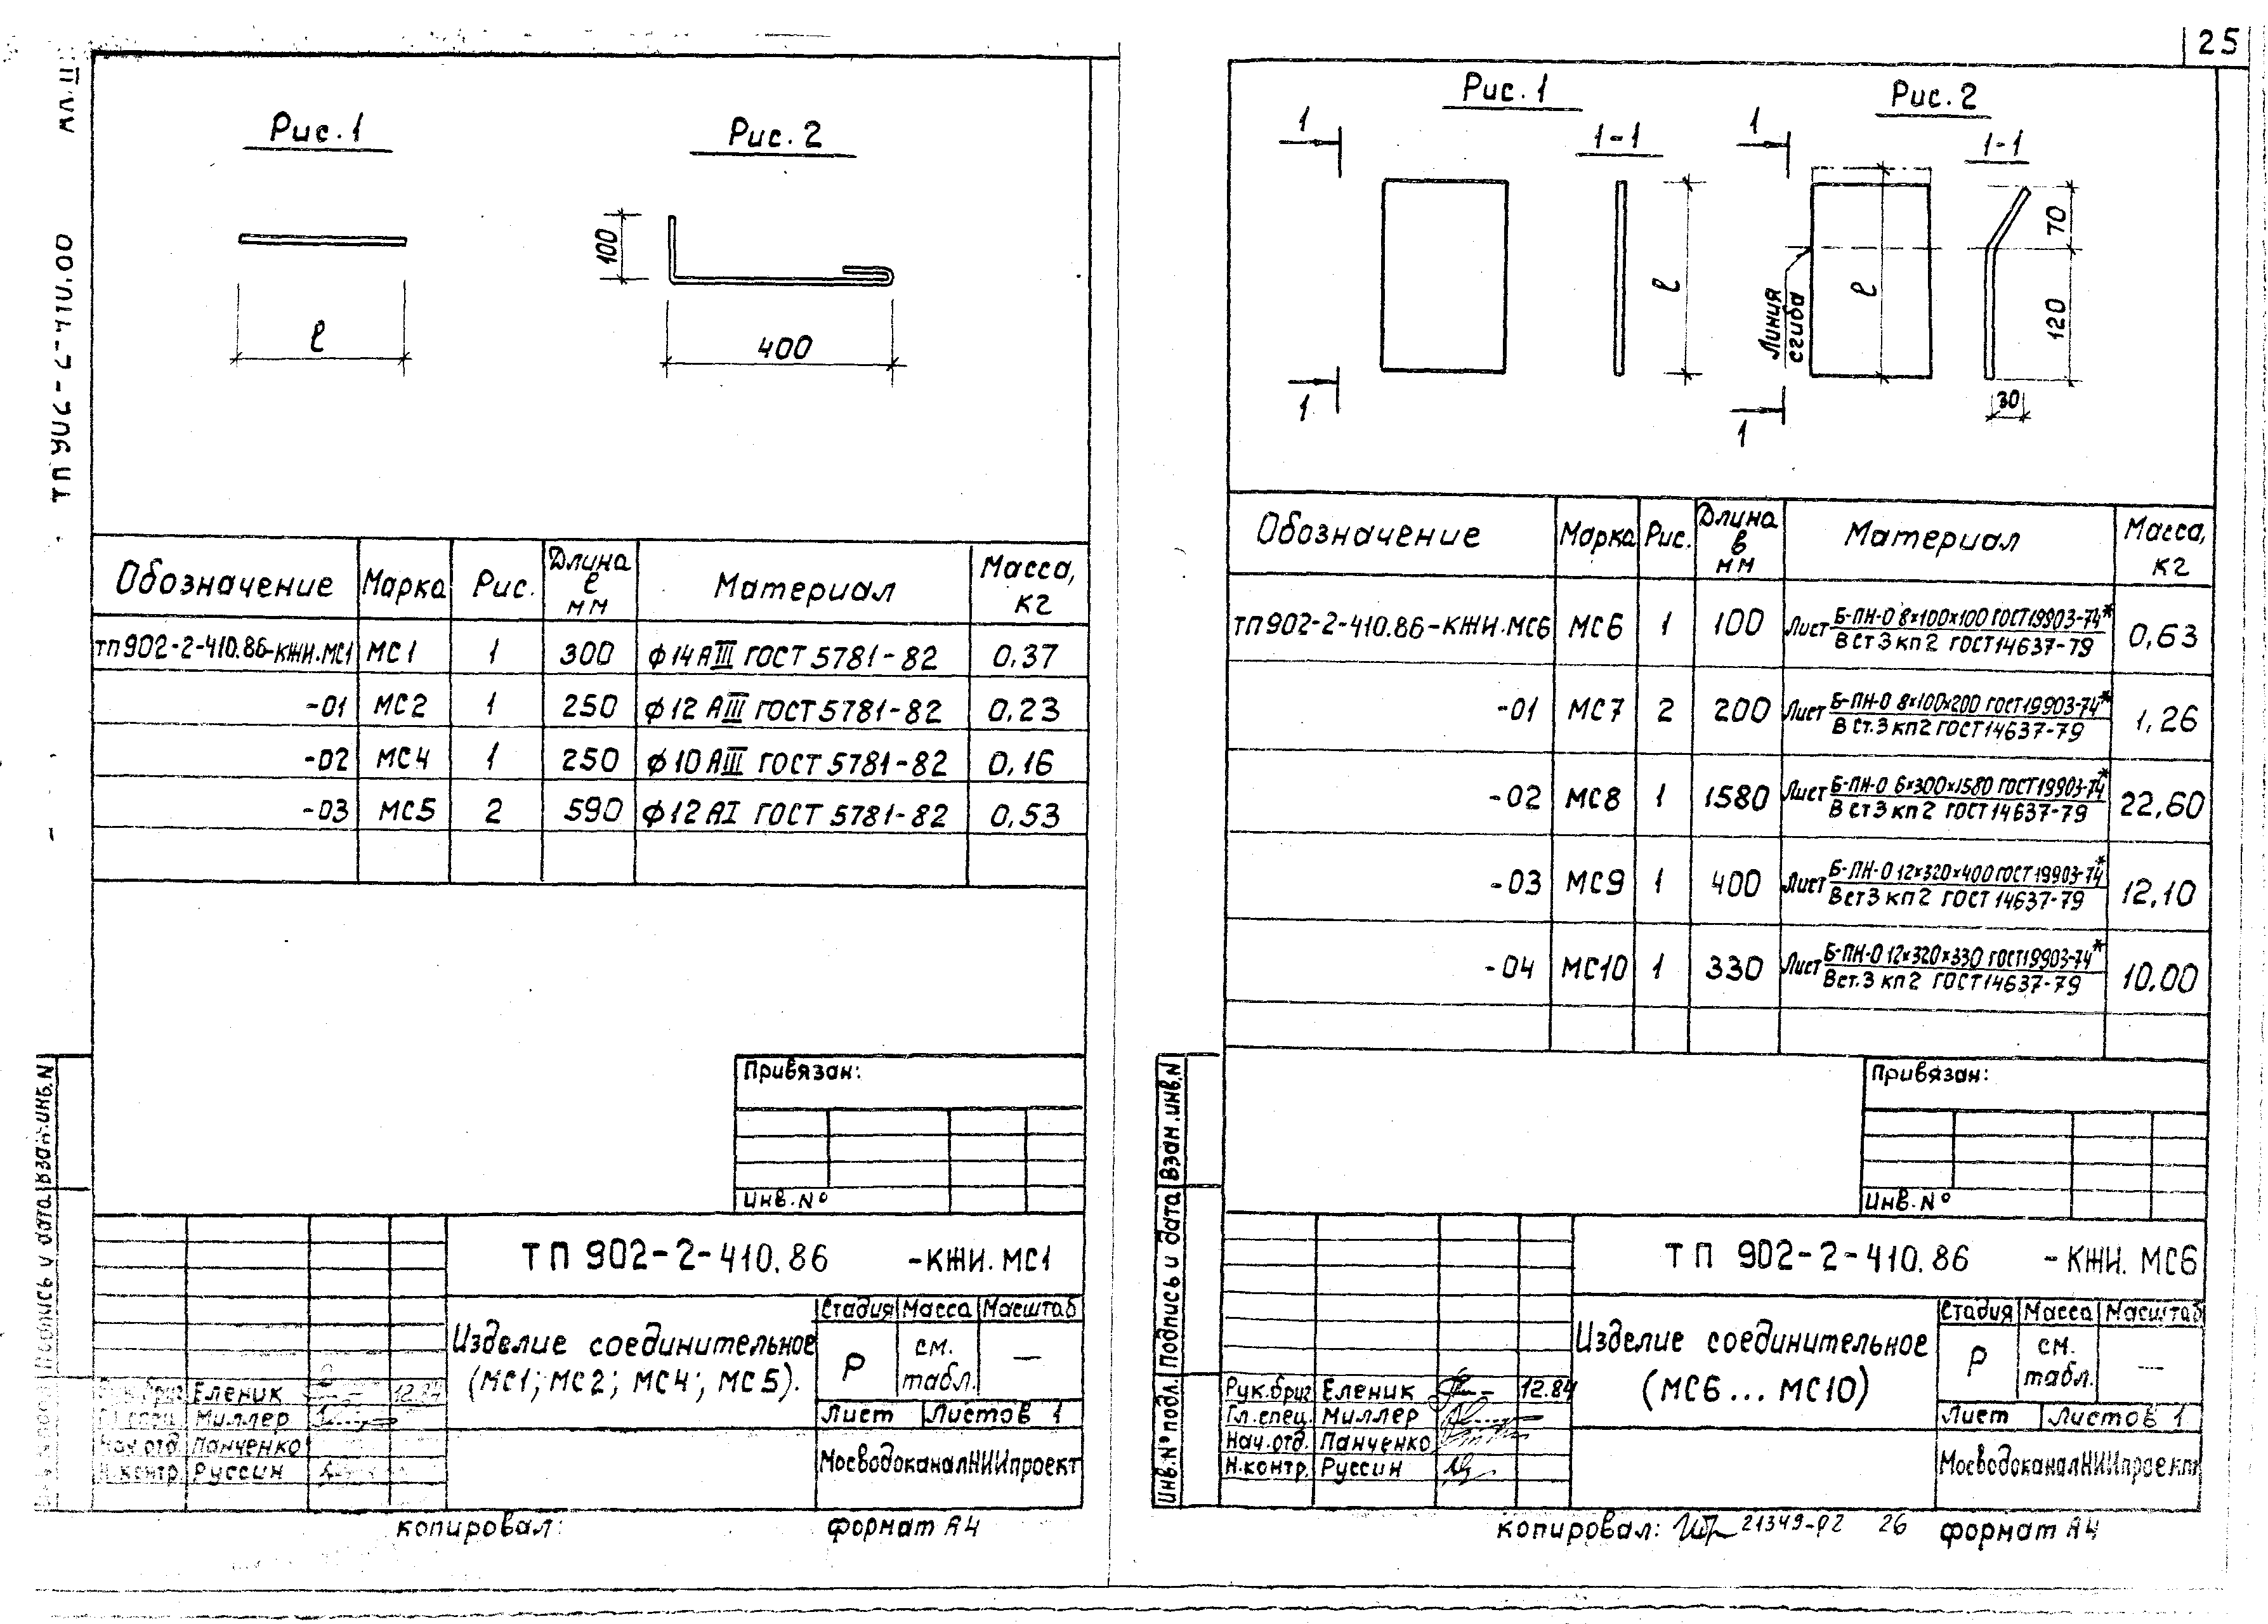 25
Рис. 1
Рис. 2
100
ℓ
400
Обозначение Марка Рис. Длина ℓ мм Материал Масса, кг
тп902-2-410.86-КЖИ.МС1 МС1 1 300 ф14АIII ГОСТ 5781-82 0,37
-01 МС2 1 250 ф12 АIII ГОСТ 5781-82 0,23
-02 МС4 1 250 ф10 АIII ГОСТ 5781-82 0,16
-03 МС5 2 590 ф12 АI ГОСТ 5781-82 0,53
Привязан:
Инв.№
ТП 902-2-410.86 -КЖИ.МС1
Изделие соединительное
(МС1; МС2; МС4; МС5).
Стадия Масса Масштаб
Р см. табл. —
Лист Листов 1
МосводоканалНИИпроект
Рук.бриг Еленик 12.84
Гл.спец. Миллер
Нач.отд. Панченко
Н.контр. Руссин
Подпись и дата Взам.инв.N
копировал: формат А4
ТП 902-2-410.86
Рис. 1
Рис. 2
1
1-1
1
1-1
ℓ
Линия
сгиба
ℓ
70
120
30
1
1
Обозначение Марка Рис. Длина в мм Материал Масса, кг
тп902-2-410.86-КЖИ.МС6 МС6 1 100 Лист Б-ПН-О 8×100×100 ГОСТ19903-74* 0,63
ВСт3кп2 ГОСТ14637-79
-01 МС7 2 200 Лист Б-ПН-О 8×100×200 ГОСТ19903-74* 1,26
Вст.3кп2 ГОСТ14637-79
-02 МС8 1 1580 Лист Б-ПН-О 6×300×1580 ГОСТ19903-74* 22,60
ВСт3кп2 ГОСТ14637-79
-03 МС9 1 400 Лист Б-ПН-О 12×320×400 ГОСТ19903-74* 12,10
Вст3кп2 ГОСТ14637-79
-04 МС10 1 330 Лист Б-ПН-О 12×320×330 ГОСТ19903-74* 10,00
Вст.3кп2 ГОСТ14637-79
Привязан:
Инв.№
ТП 902-2-410.86 -КЖИ.МС6
Изделие соединительное
(МС6...МС10)
Стадия Масса Масштаб
Р см. табл. —
Лист Листов 1
МосводоканалНИИпроект
Рук.бриг Еленик 12.84
Гл.спец. Миллер
Нач.отд. Панченко
Н.контр. Руссин
Инв.№ подл. Подпись и дата Взам.инв.N
копировал: 21349-02 26 формат А4